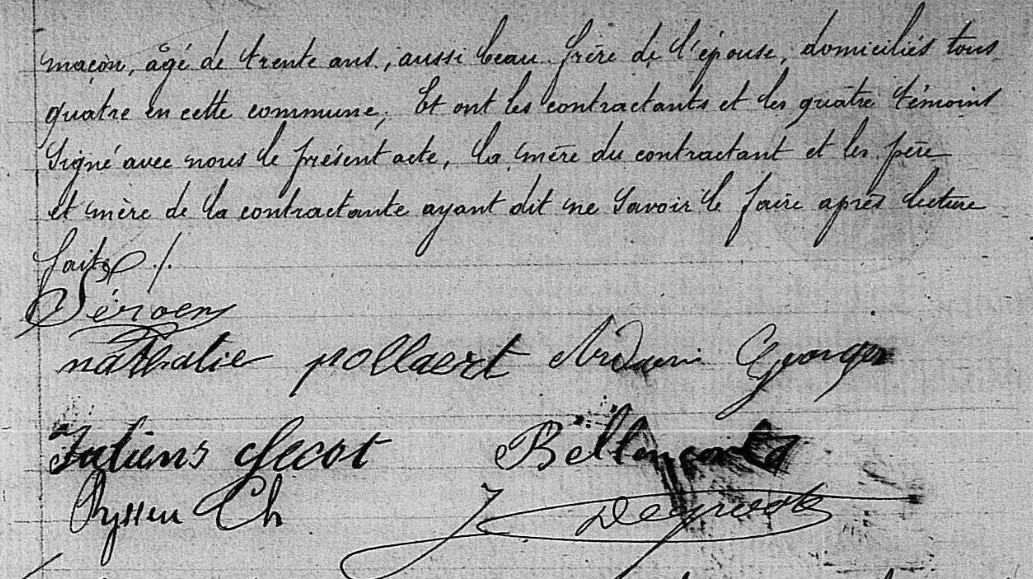 maçon, âgé de trente ans, aussi beau frère de l'épouse, domiciliés tous
quatre en cette commune; Et ont les contractants et les quatre témoins
signé avec nous le présent acte, la mère du contractant et les père
et mère de la contractante ayant dit ne savoir le faire après lecture
faite ./.
Séroen
nathalie pollaert Georges
Juliens
Ryssen Ch J.